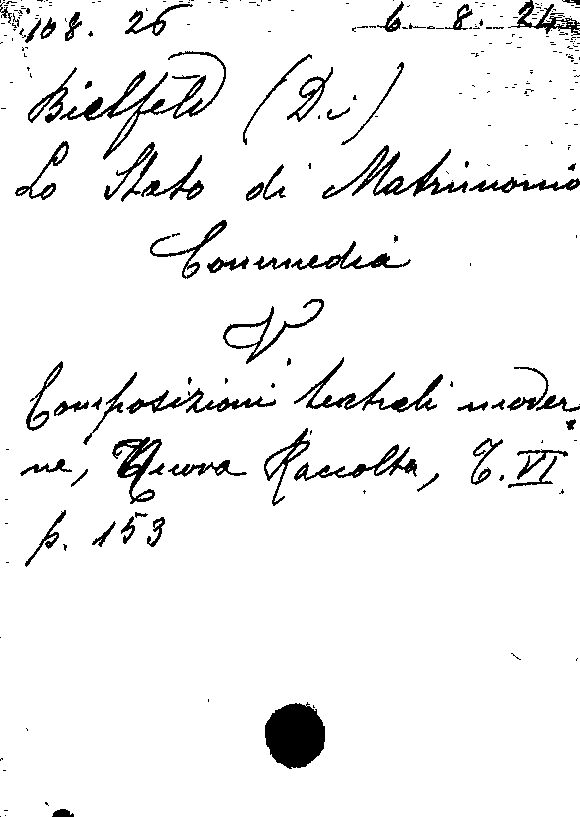 108. 26 6. 8. 24
Bielfeld (Di)
Lo Stato di Matrimonio
Commedia
V
Composizioni teatrali moder-
ne, Nuova Raccolta, T. VI
p. 153